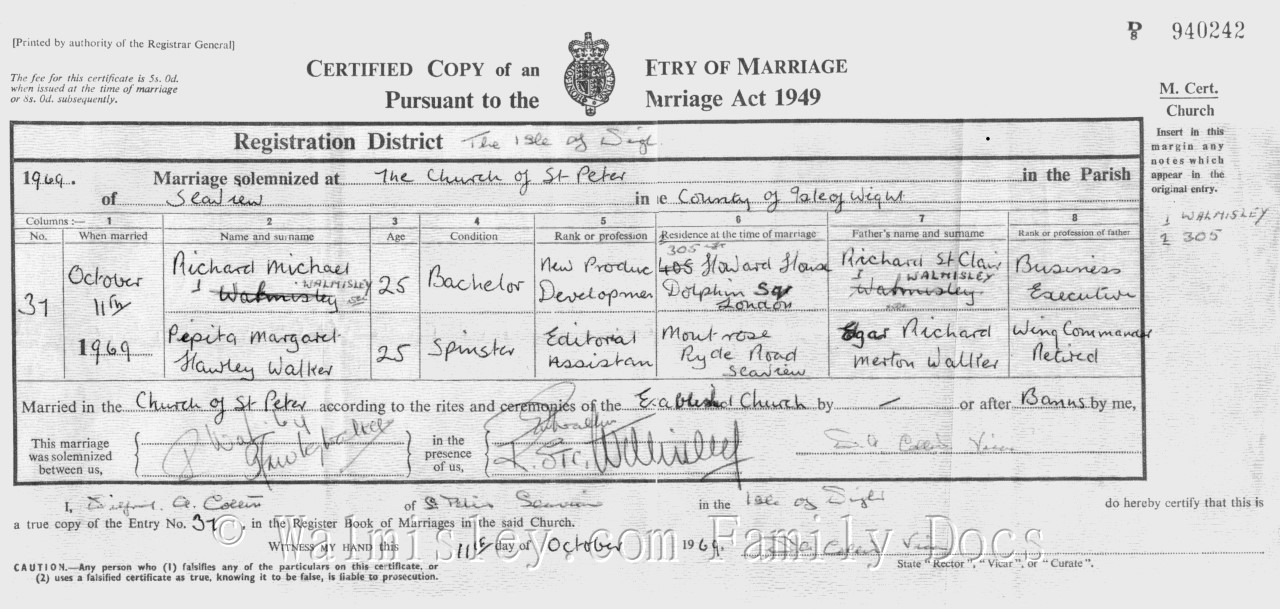 D
8 940242
[Printed by authority of the Registrar General]
The fee for this certificate is 5s. 0d.
when issued at the time of marriage
or 8s. 0d. subsequently.
CERTIFIED COPY of an ETRY OF MARRIAGE
Pursuant to the Marriage Act 1949
M. Cert.
Church
Insert in this
margin any
notes which
appear in the
original entry.
1 WALMISLEY
2 305
Registration District The Isle of
1969. Marriage solemnized at The Church of St Peter in the Parish
of Seaview in e County of Isle of Wight
Columns :— 1 2 3 4 5 6 7 8
No. When married Name and surname Age Condition Rank or profession Residence at the time of marriage Father's name and surname Rank or profession of father
37 October 11th 1969
Richard Michael 1 WALMISLEY Walmisley 25 Bachelor New Produc Developmen 305 405 Howard House Dolphin Sq London Richard St Clair WALMISLEY Walmisley Business Executive
Pepita Margaret Hawley Walker 25 Spinster Editorial Assistan Montrose Ryde Road Seaview Richard Merton Walker Wing Commander Retired
Married in the Church of St Peter according to the rites and ceremonies of the Established Church by — or after Banns by me,
This marriage was solemnized between us, in the presence of us, R. St C. Walmisley Vicar
I, A. Collin of St Peter Seaview in the Isle of do hereby certify that this is
a true copy of the Entry No. 37, in the Register Book of Marriages in the said Church.
WITNESS MY HAND this 11th day of October 1969. Vicar
© Walmisley.com Family Docs
CAUTION.—Any person who (1) falsifies any of the particulars on this certificate, or
(2) uses a falsified certificate as true, knowing it to be false, is liable to prosecution.
State "Rector", "Vicar", or "Curate".